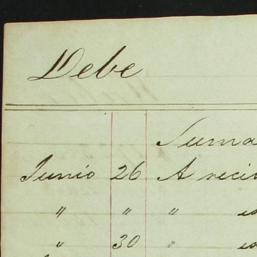 Debe
Suma
Junio 26 A reci
" " "
" 30 "